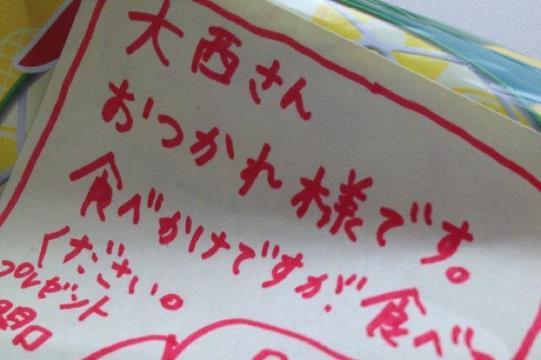 大西さん
おつかれ様です。
食べかけですが、食べ
ください。
プレゼント